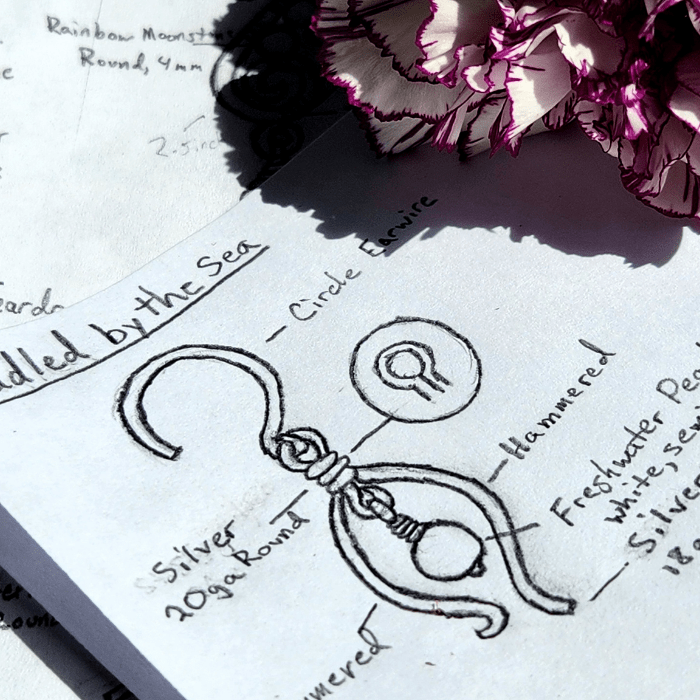 Rainbow Moonstone
Round, 4mm
adled by the Sea
Circle Earwire
Hammered
Freshwater Pea
white, sem
Silver
18g
Silver
20ga Round
mmered